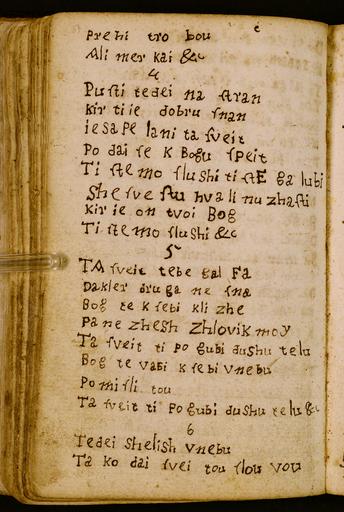 Prehi tro bou
Ali mer kai &c
4
Pusti tedei na stran
kir tiie dobru snan
iesape lani ta sveit
Po dai se k Bogu speit
Ti stemo slushi ti stE ga lubi
She sve stu hvali nu zhasti
kir ie on tvoi Bog
Ti stemo slushi &c
5
TA sveit tebe gal Fa
Dakler druga ne sna
Bog te k sebi kli zhe
Pa ne zhesh zhlovik moy
Ta sveit ti po gubi dushu telu
Bog te vabi k sebi vnebu
Po misli tou
Ta sveit ti Pogubi dushu telu &c
6
Tedei shelish vnebu
Ta ko dai svei tou slou vou